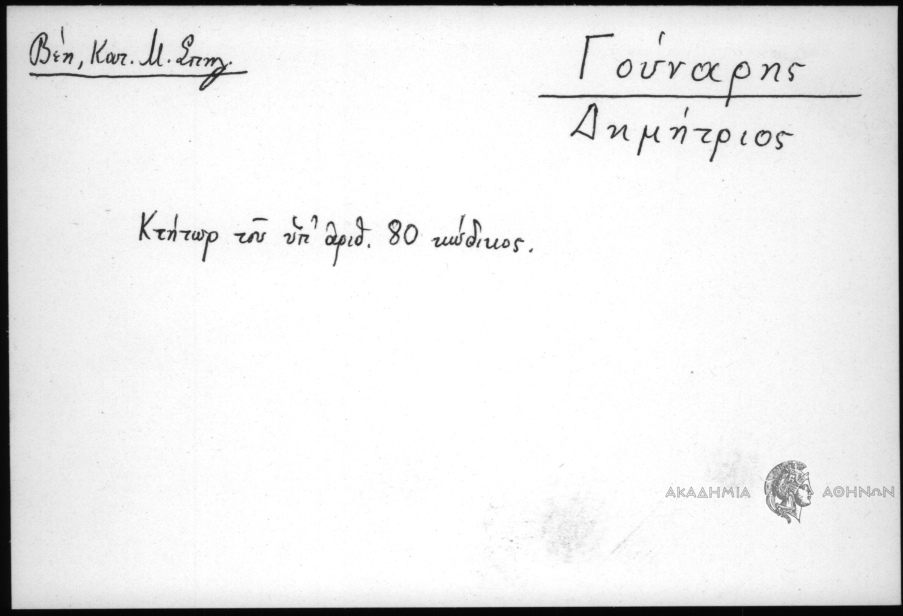 Βέη, Κατ. Μ. Σπηλ.
Γούναρης
Δημήτριος
Κτήτωρ τοῦ ὑπ' ἀριθ. 80 κώδικος.
ΑΚΑΔΗΜΙΑ ΑΘΗΝΩΝ